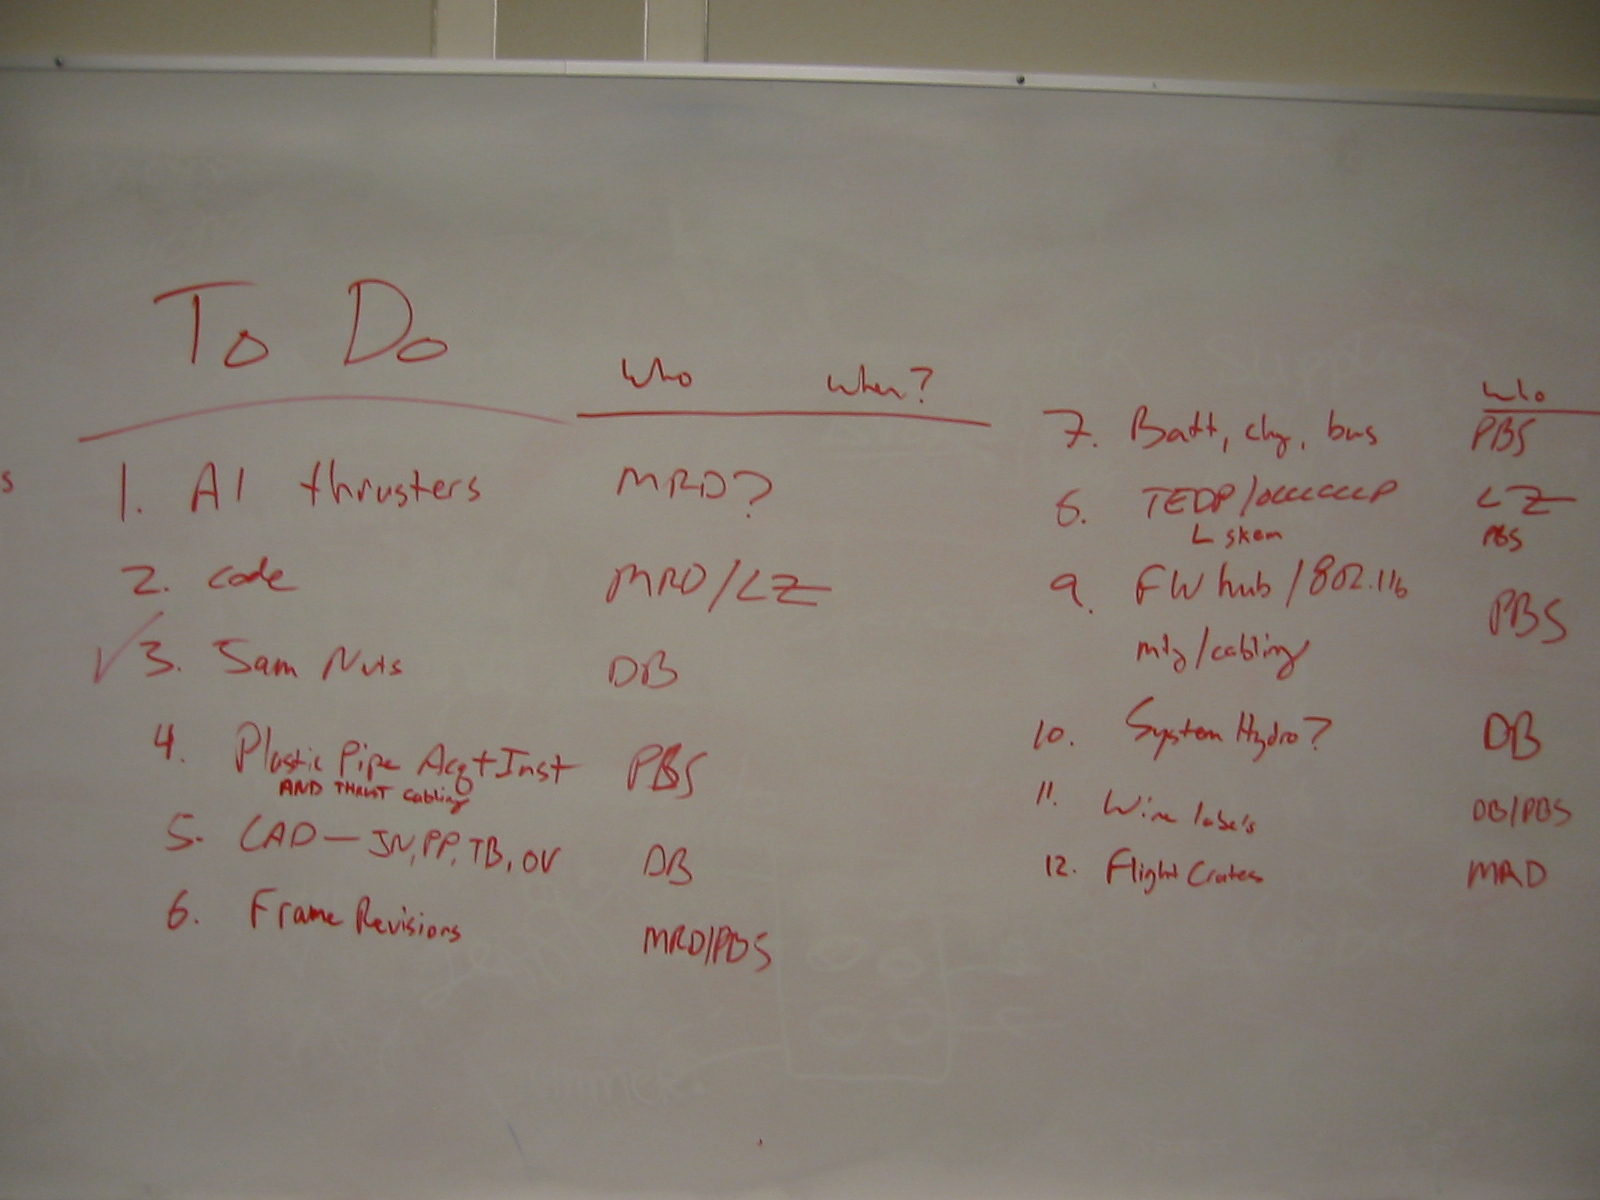 To Do
Who When?
1. Al thrusters MRD?
2. code MRD/LZ
3. Jam Nuts DB
4. Plastic Pipe Acq + Inst PBS
AND THRUST Cabling
5. CAD — JN, PP, TB, OV DB
6. Frame Revisions MRD/PBS
who
7. Batt, chg, bus PBS
8. TEDP/ LZ
L skem PBS
9. FW hub / 802.11b PBS
mtg/cabling
10. System Hydro? DB
11. Wire labels DB/PBS
12. Flight Crates MRD
s